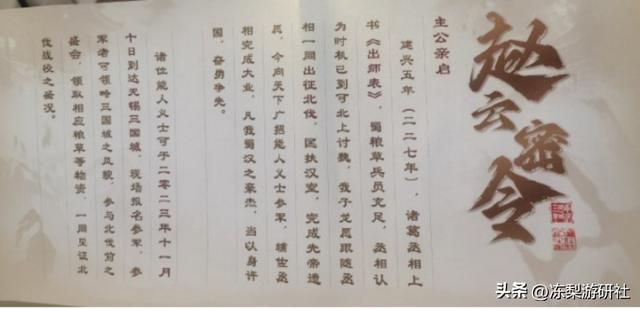 赵云密令
主公亲启
建兴五年(二二七年),诸葛丞相上
书《出师表》,蜀粮草兵员充足,丞相认
为时机已到可北上讨魏,我子龙愿跟随丞
相一同出征北伐,匡扶汉室,完成先帝遗
愿,今向天下广招能人义士参军,辅佐丞
相完成大业,凡我蜀汉之豪杰,当以身许
国,奋勇争先。
诸位能人义士可于二零二三年十一月
十日到达无锡三国城,现场报名参军,参
军者可领略三国城之风貌,参与北伐前之
盛会,领取相应粮草等物资,一同见证北
伐战役之盛况。
头条 @冻梨游研社